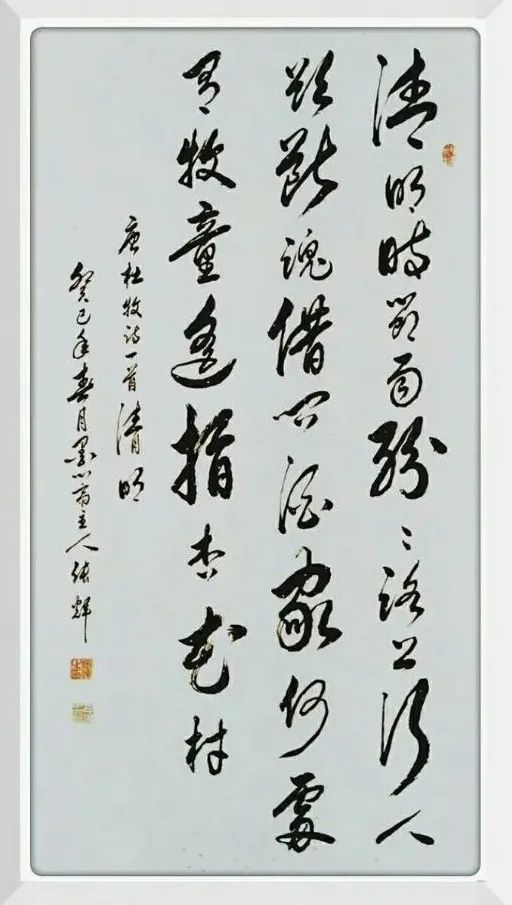 清明時節雨紛〻路上行人
欲斷魂借問酒家何處
有牧童遙指杏花村
唐杜牧詩一首清明
癸巳年春月墨心斋主人輝